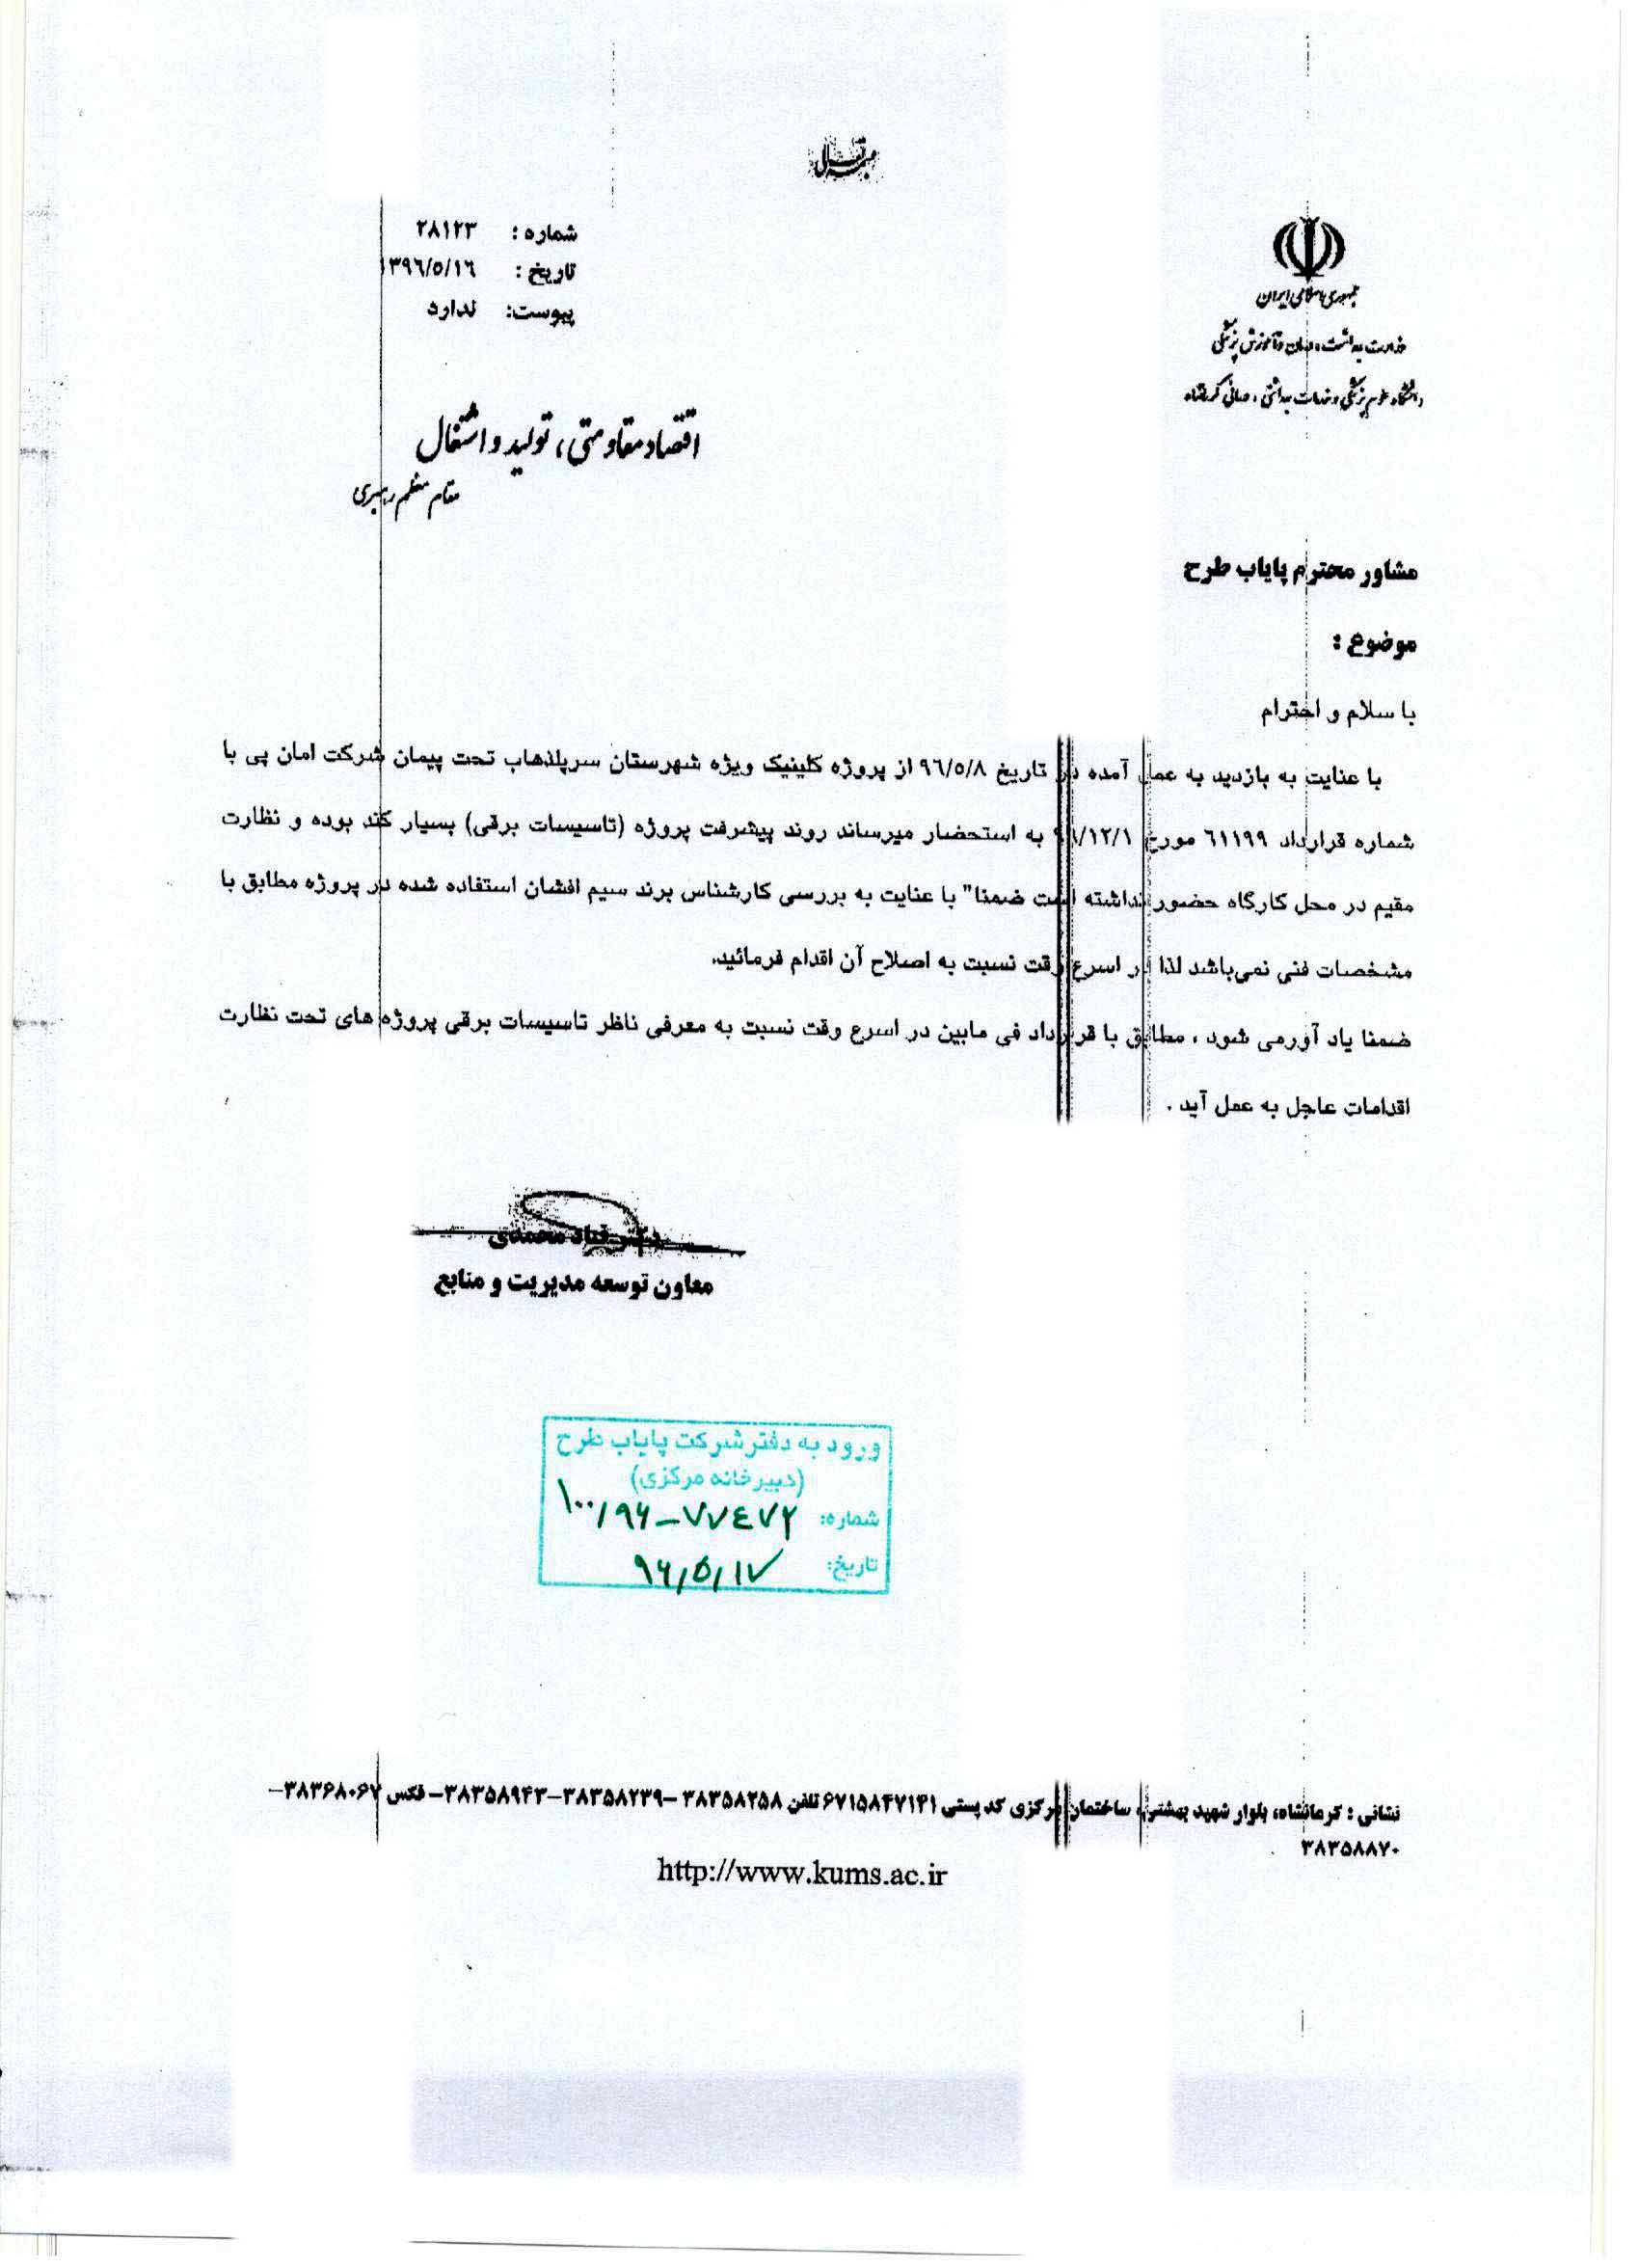 بسمه تعالی
شماره : ۲۸۱۲۳
تاریخ : ۱۳۹۶/۵/۱۶
پیوست: ندارد
جمهوری اسلامی ایران
وزارت بهداشت، درمان و آموزش پزشکی
دانشگاه علوم پزشکی و خدمات بهداشتی ، درمانی کرمانشاه
اقتصاد مقاومتی، تولید و اشتغال
مقام معظم رهبری
مشاور محترم پایاب طرح
موضوع :
با سلام و احترام
با عنایت به بازدید به عمل آمده در تاریخ ۹۶/۵/۸ از پروژه کلینیک ویژه شهرستان سرپلذهاب تحت پیمان شرکت امان پی با
شماره قرارداد ۶۱۱۹۹ مورخ /۱۲/۱ به استحضار میرساند روند پیشرفت پروژه (تاسیسات برقی) بسیار کند بوده و نظارت
مقیم در محل کارگاه حضور نداشته است ضمنا" با عنایت به بررسی کارشناس برند سیم افشان استفاده شده در پروژه مطابق با
مشخصات فنی نمی‌باشد لذا در اسرع وقت نسبت به اصلاح آن اقدام فرمائید.
ضمنا یاد آورمی شود ، مطابق با قرارداد فی مابین در اسرع وقت نسبت به معرفی ناظر تاسیسات برقی پروژه های تحت نظارت
اقدامات عاجل به عمل آید .
دکتر قباد محمدی
معاون توسعه مدیریت و منابع
ورود به دفتر شرکت پایاب طرح
(دبیرخانه مرکزی)
شماره: ۱۰۰/۹۶-۷۷۴۷۲
تاریخ: ۹۶/۵/۱۷
نشانی : کرمانشاه، بلوار شهید بهشتی، ساختمان مرکزی کد پستی ۶۷۱۵۸۴۷۱۴۱ تلفن ۳۸۳۵۸۲۵۸ -۳۸۳۵۸۲۳۹-۳۸۳۵۸۹۴۳- فکس ۳۸۳۶۸۰۶۷-
۳۸۳۵۸۸۷۰
http://www.kums.ac.ir